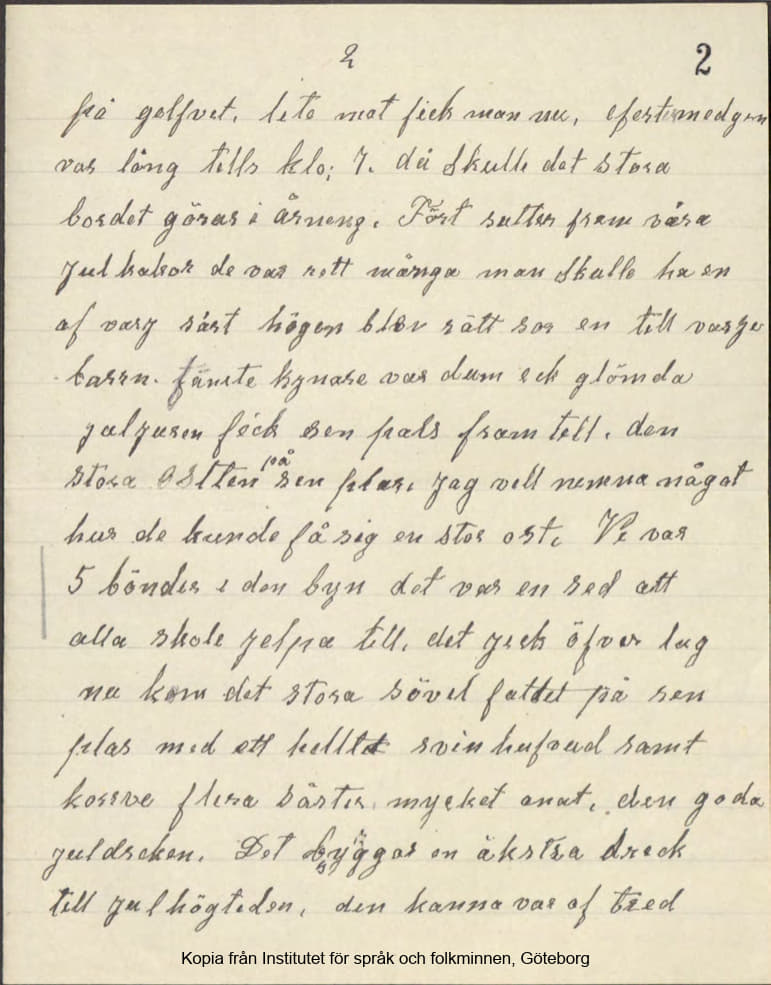 2
2
på golfvet, lite mat fick man nu, efertmedgen
var lång tells klo; 7. då skulle det stora
bordet göras i årneng. Fört satter fram våra
Julkakor de var rett många man skulle ha en
af varj sårt högen blev sått sor en till varje
barrn. fänste kynare var dum eck glömda
juljusen féck sen pals fram tell. den
stora Ostten på sen plas, jag vell nemna något
hur de kunde få sig en stor ost, Vi var
5 bönder i den byn det var en sed att
alla skole jelpa till, det jeck öfver lag
nu kom det stora sövel fattet på sen
plas med ett hellt svinhufvud samt
korrve flera sårter, mycket anat, den goda
juldreken. Det byggas en äkstra dreck
till julhögtiden, den kanna var af tred
Kopia från Institutet för språk och folkminnen, Göteborg